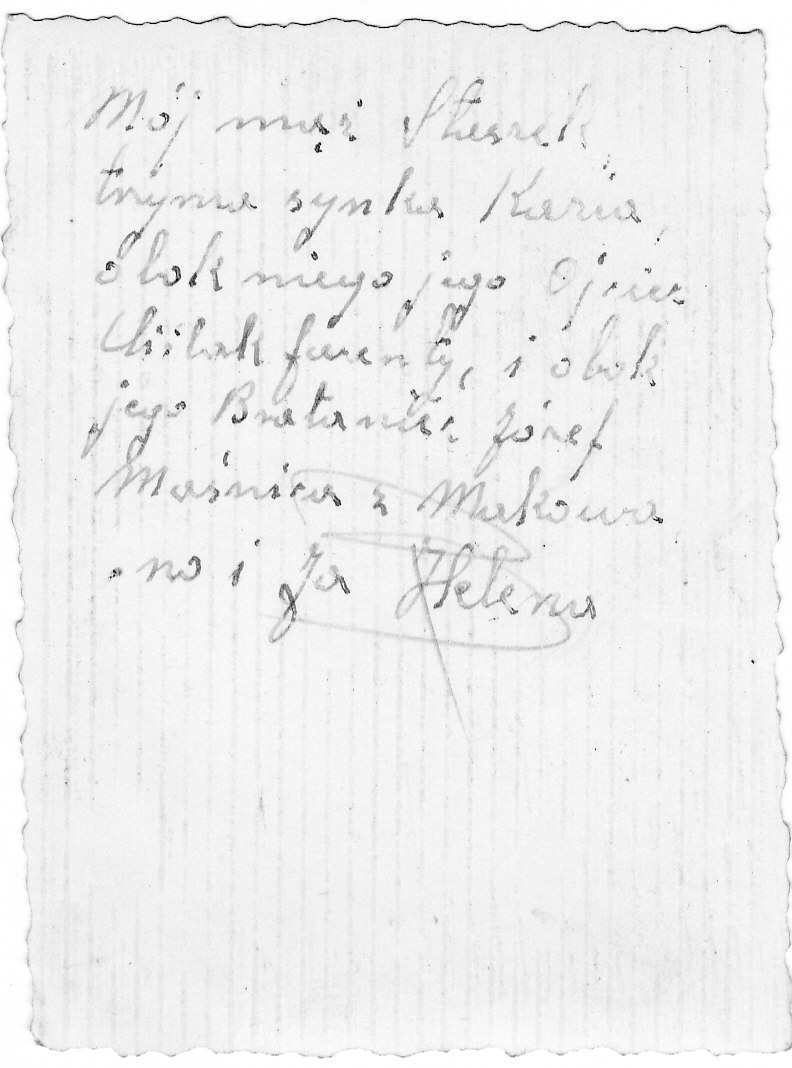 Mój mąż Staszek,
trzyma synka Kazia,
obok niego jego Ojciec
Ciślak, i obok
jego Bratanic Józef
Maśnica z Makowa
no i Ja Helena